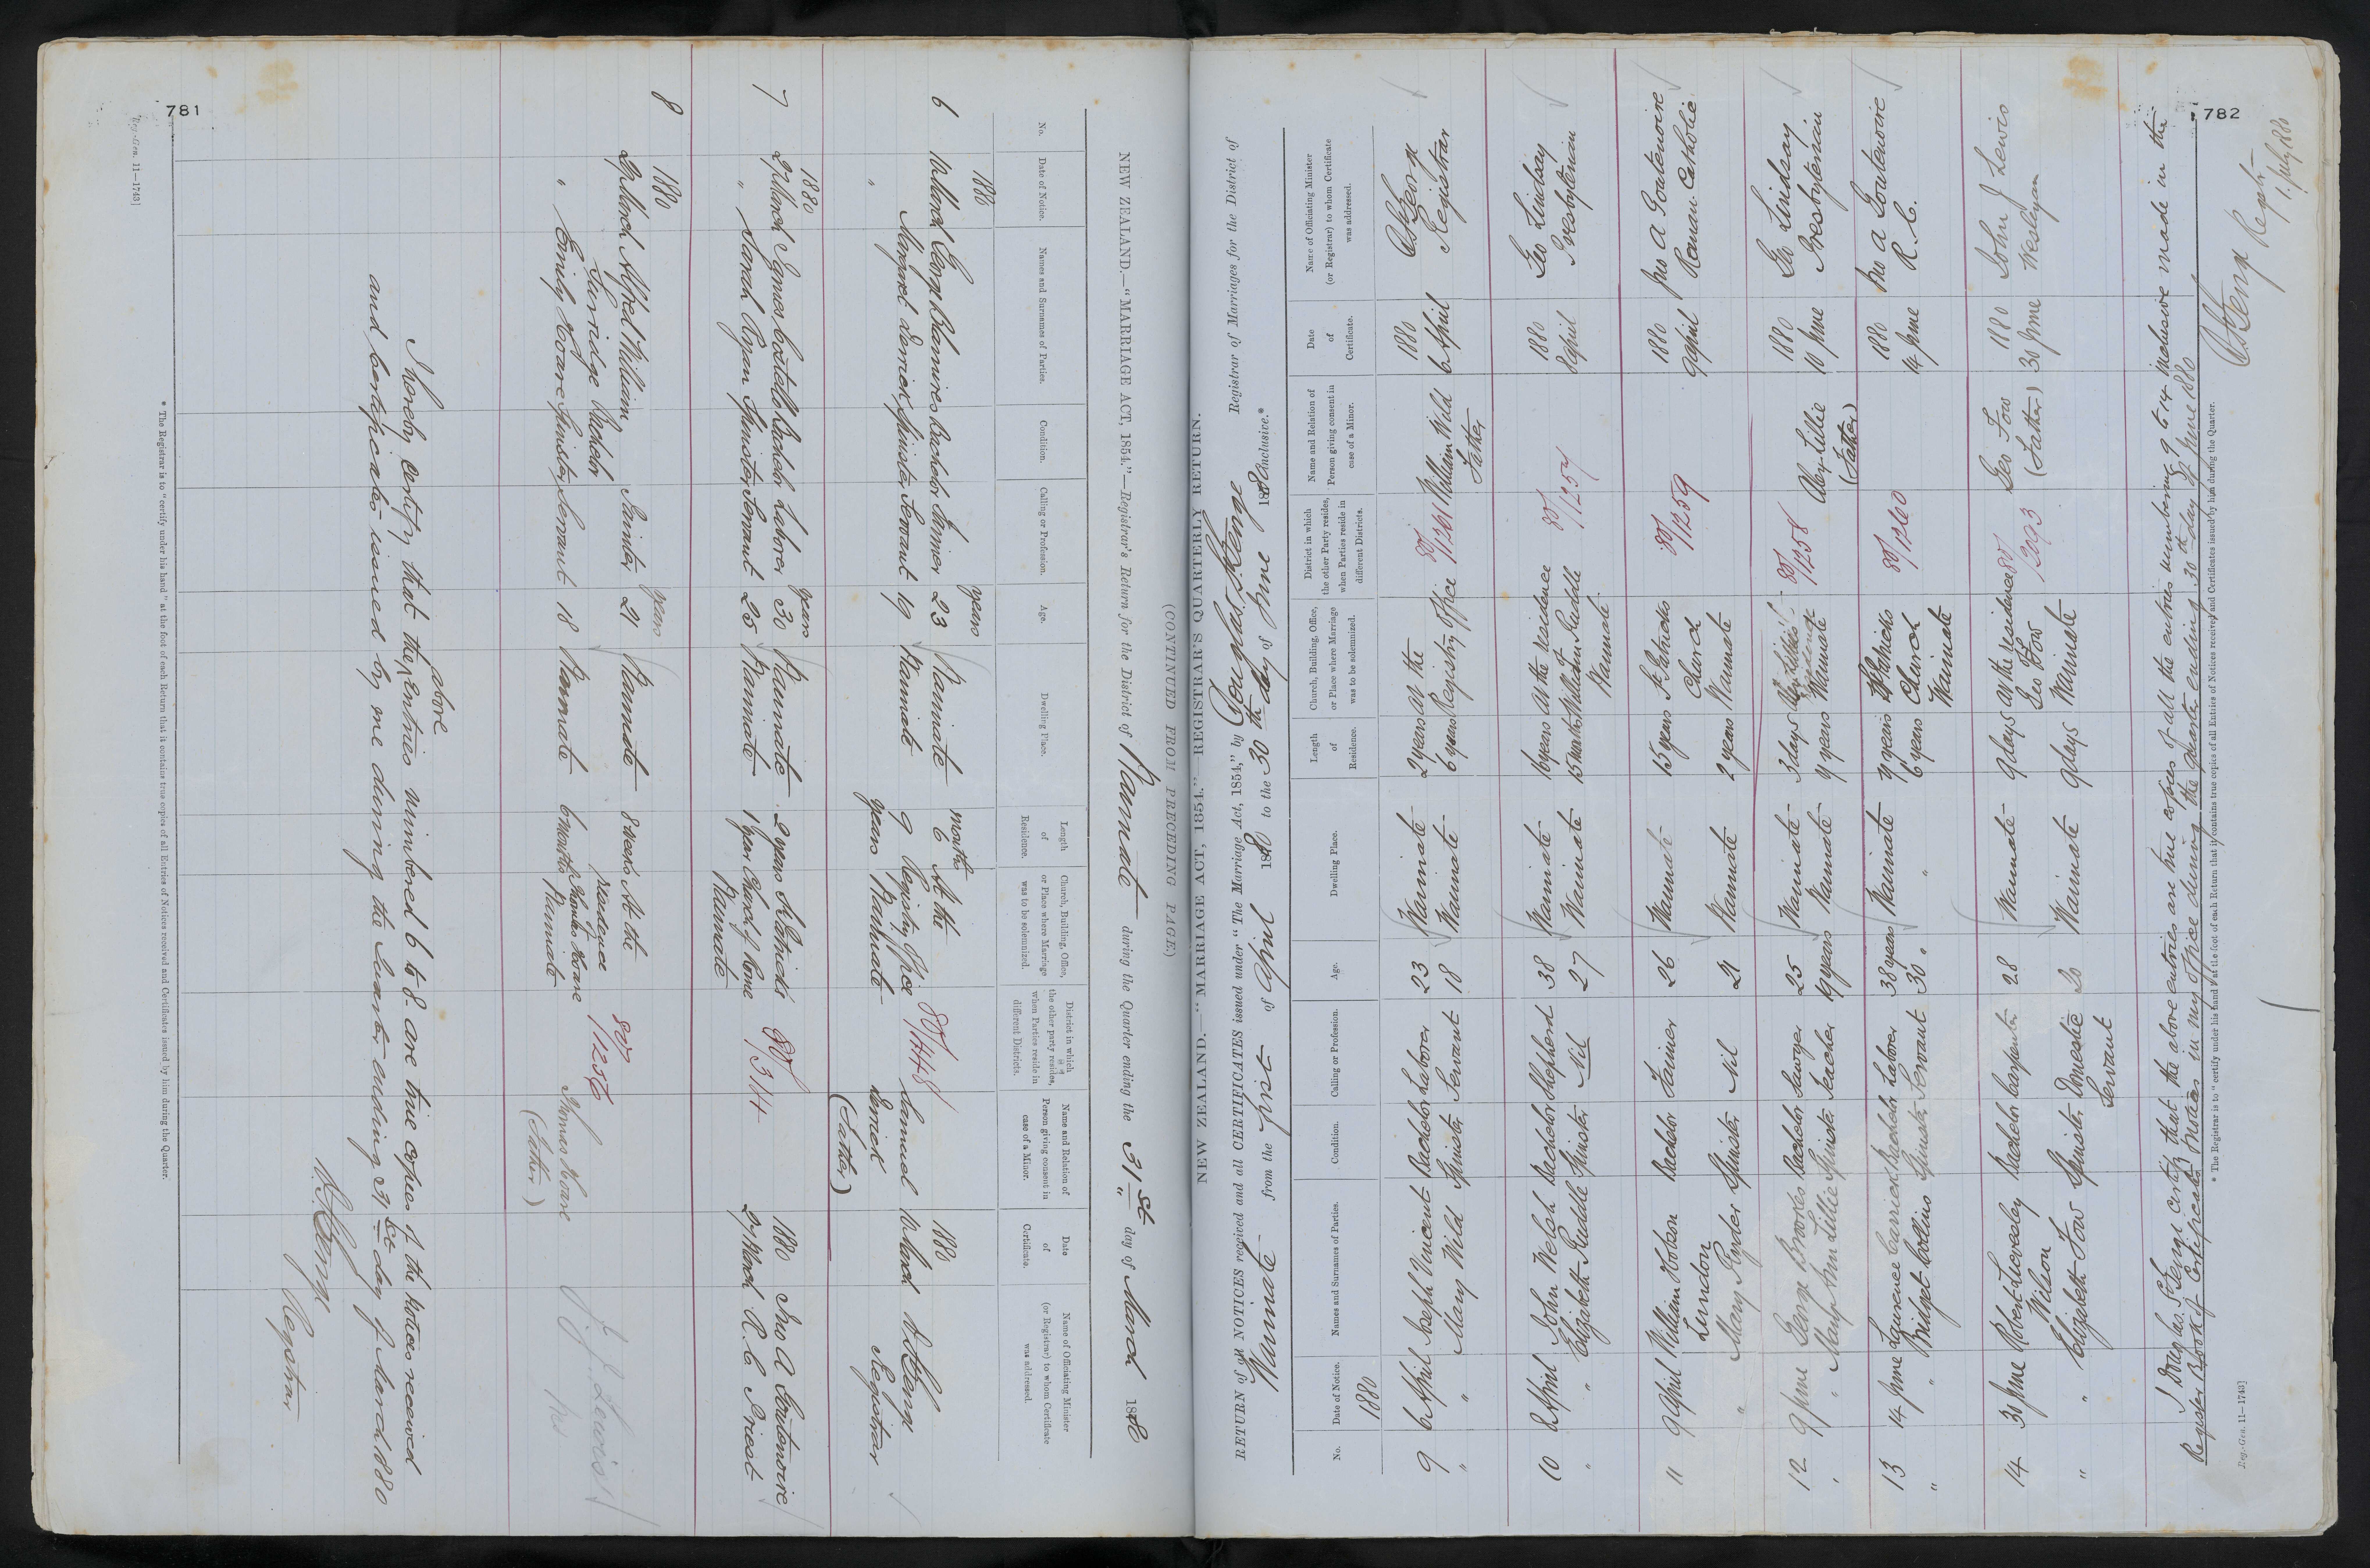 781
NEW ZEALAND.—"MARRIAGE ACT, 1854."—Registrar's Return for the District of Waimate during the Quarter ending the 31st day of March 1880
No.
Date of Notice.
Names and Surnames of Parties.
Condition.
Calling or Profession.
Age.
Dwelling Place.
Length of Residence.
Church, Building, Office, or Place where Marriage was to be solemnized.
District in which the other party resides, when Parties reside in different Districts.
Name and Relation of Person giving consent in case of a Minor.
Date of Certificate.
Name of Officiating Minister (or Registrar) to whom Certificate was addressed.
1880 years months 1880
6 March George Bachelor Farmer 23 Waimate 6 At the 80/1448 Samuel March Registrar
" Margaret Derrick Spinster Servant 19 Waimate 9 years Registry Office Waimate Derrick (Father)
1880 years 1880
7 27 March Bachelor Laborer 30 Waimate 2 years St Patricks 80/1314 27 March Jno A Goutenoire
" Sarah Ryan Spinster Servant 25 Waimate 1 year Church of Rome Waimate R.C Priest
1880 years
8 29 March Alfred William Surridge Bachelor Painter 21 Waimate 8 weeks At the residence 80/1256 Thomas Hoare J. J. Lewis
" Emily Hoare Spinster Servant 18 Waimate 6 months Charles Hoare Waimate (Father)
I hereby certify that the above entries numbered 6 to 8 are true copies of the notices received
and certificates issued by me during the Quarter ending 31st day of March 1880
Registrar
* The Registrar is to "certify under his hand" at the foot of each Return that it contains true copies of all Entries of Notices received and Certificates issued by him during the Quarter.
Reg.-Gen. 11—1743]
782
(CONTINUED FROM PRECEDING PAGE.)
NEW ZEALAND.—"MARRIAGE ACT, 1854."—REGISTRAR'S QUARTERLY RETURN.
RETURN of all NOTICES received and all CERTIFICATES issued under "The Marriage Act, 1854," by Douglas Registrar of Marriages for the District of
Waimate from the first of April 1880 to the 30th day of June 1880 inclusive.*
No.
Date of Notice.
Names and Surnames of Parties.
Condition.
Calling or Profession.
Age.
Dwelling Place.
Length of Residence.
Church, Building, Office, or Place where Marriage was to be solemnized.
District in which the other Party resides, when Parties reside in different Districts.
Name and Relation of Person giving consent in case of a Minor.
Date of Certificate.
Name of Officiating Minister (or Registrar) to whom Certificate was addressed.
1880 1880
9 6 April Joseph Vincent Bachelor Laborer 23 Waimate 2 years At the 80/1261 William Wild 6 April
" " Mary Wild Spinster Servant 18 Waimate 6 years Registry Office Father Registrar
1880
10 8 April John Welsh Bachelor Shepherd 38 Waimate 16 years At the residence 80/1257 8 April Geo Lindsay
" " Elizabeth Ruddle Spinster Nil 27 Waimate 15 months of William Ruddle Waimate Presbyterian
1880
11 9 April William Hobson Lundon Bachelor Farmer 26 Waimate 15 years St Patricks 80/1259 9 April Jno A Goutenoire
" Mary Ryder Spinster Nil 21 Waimate 2 years Church Waimate Roman Catholic
1880
12 9 June George Brookes Bachelor Sawyer 25 Waimate 3 days 80/1258 Alex Lillie 10 June Geo Lindsay
" " Mary Ann Lillie Spinster Teacher 19 years Waimate 4 years residence Waimate (Father) Presbyterian
1880
13 14 June Laurence Carrick Bachelor Laborer 38 years Waimate 4 years St Patricks 80/1260 14 June Jno A Goutenoire
" " Bridget Collins Spinster Servant 30 " " 6 years Church Waimate R.C.
1880
14 30 June Robert Liversley Wilson Bachelor Carpenter 28 Waimate 9 days At the residence 80/2093 Geo Fow 30 June John J Lewis
" " Elizabeth Fow Spinster Domestic Servant 20 Waimate 9 days Geo Fow Waimate (Father) Wesleyan
certify that the above entries are true copies of all the entries numbering 9 to 14 inclusive made in the
Register Book of Certificates & Notices in my office during the quarter ending 30th day of June 1880
1. July 1880
* The Registrar is to "certify under his hand" at the foot of each Return that it contains true copies of all Entries of Notices received and Certificates issued by him during the Quarter.
Reg.-Gen. 11—1743]